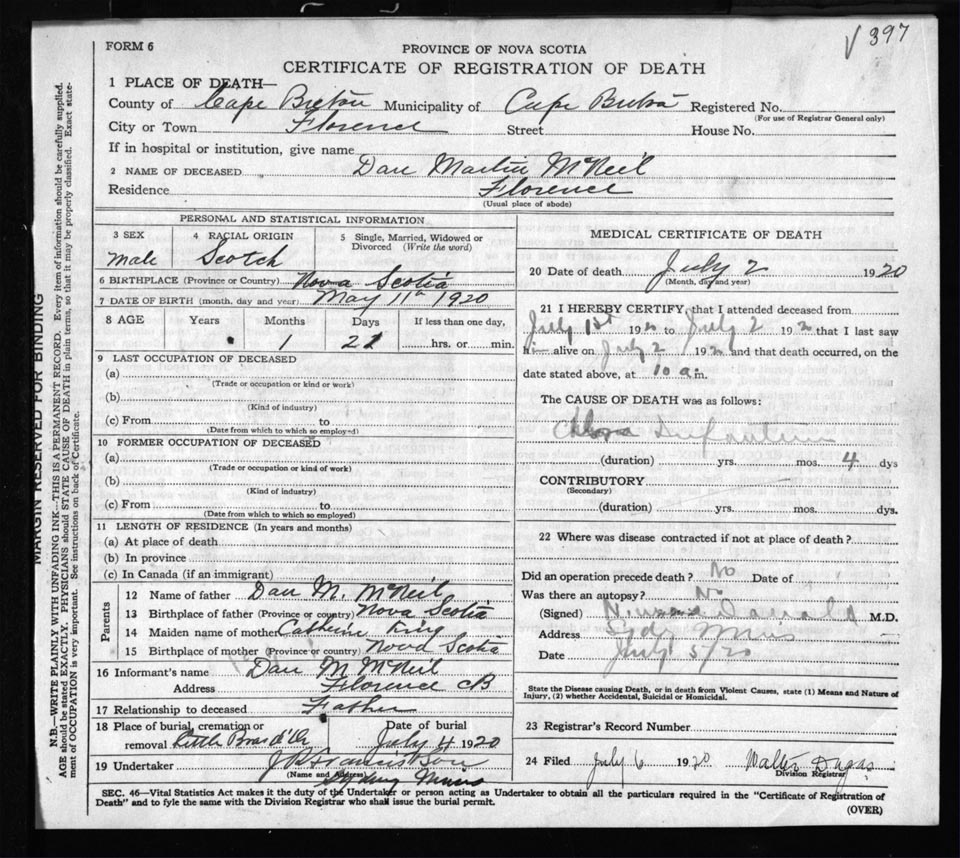 √ 397
FORM 6
PROVINCE OF NOVA SCOTIA
CERTIFICATE OF REGISTRATION OF DEATH
1 PLACE OF DEATH—
County of Cape Breton Municipality of Cape Breton Registered No.
(For use of Registrar General only)
City or Town Florence Street House No.
If in hospital or institution, give name
2 NAME OF DECEASED Dan Martin McNeil
Residence Florence
(Usual place of abode)
PERSONAL AND STATISTICAL INFORMATION
3 SEX 4 RACIAL ORIGIN 5 Single, Married, Widowed or
Divorced (Write the word)
Male Scotch
6 BIRTHPLACE (Province or Country) Nova Scotia
7 DATE OF BIRTH (month, day and year) May 11th 1920
8 AGE Years Months Days If less than one day,
1 21 hrs. or min.
9 LAST OCCUPATION OF DECEASED
(a)
(Trade or occupation or kind or work)
(b)
(Kind of industry)
(c) From to
(Date from which to which so employed)
10 FORMER OCCUPATION OF DECEASED
(a)
(Trade or occupation or kind of work)
(b)
(Kind of industry)
(c) From to
(Date from which to which so employed)
11 LENGTH OF RESIDENCE (In years and months)
(a) At place of death
(b) In province
(c) In Canada (if an immigrant)
Parents
12 Name of father Dan M. McNeil
13 Birthplace of father (Province or country) Nova Scotia
14 Maiden name of mother Catherine King
15 Birthplace of mother (Province or country) Nova Scotia
16 Informant's name Dan M McNeil
Address Florence CB
17 Relationship to deceased Father
18 Place of burial, cremation or Date of burial
removal Little Bras d'Or July 4 1920
19 Undertaker
(Name and Address)
Sydney Mines
MEDICAL CERTIFICATE OF DEATH
20 Date of death July 2 1920
(Month, day and year)
21 I HEREBY CERTIFY, that I attended deceased from
July 1st 192 to July 2 192 that I last saw
h alive on July 2 192 and that death occurred, on the
date stated above, at 10 a.m.
The CAUSE OF DEATH was as follows:
Infantum
(duration) yrs. mos. 4 dys
CONTRIBUTORY
(Secondary)
(duration) yrs. mos. dys.
22 Where was disease contracted if not at place of death?
Did an operation precede death? No Date of
Was there an autopsy? No
(Signed) M.D.
Address Sydy Mines
Date July 5/20
State the Disease causing Death, or in death from Violent Causes, state (1) Means and Nature of
Injury, (2) whether Accidental, Suicidal or Homicidal.
23 Registrar's Record Number
24 Filed July 6 1920 Walter Dugas
Division Registrar
SEC. 46—Vital Statistics Act makes it the duty of the Undertaker or person acting as Undertaker to obtain all the particulars required in the "Certificate of Registration of
Death" and to fyle the same with the Division Registrar who shall issue the burial permit.
(OVER)
MARGIN RESERVED FOR BINDING
N.B.—WRITE PLAINLY WITH UNFADING INK—THIS IS A PERMANENT RECORD. Every item of information should be carefully supplied.
AGE should be stated EXACTLY. PHYSICIANS should STATE CAUSE OF DEATH in plain terms, so that it may be properly classified. Exact state-
ment of OCCUPATION is very important. See instructions on back of Certificate.